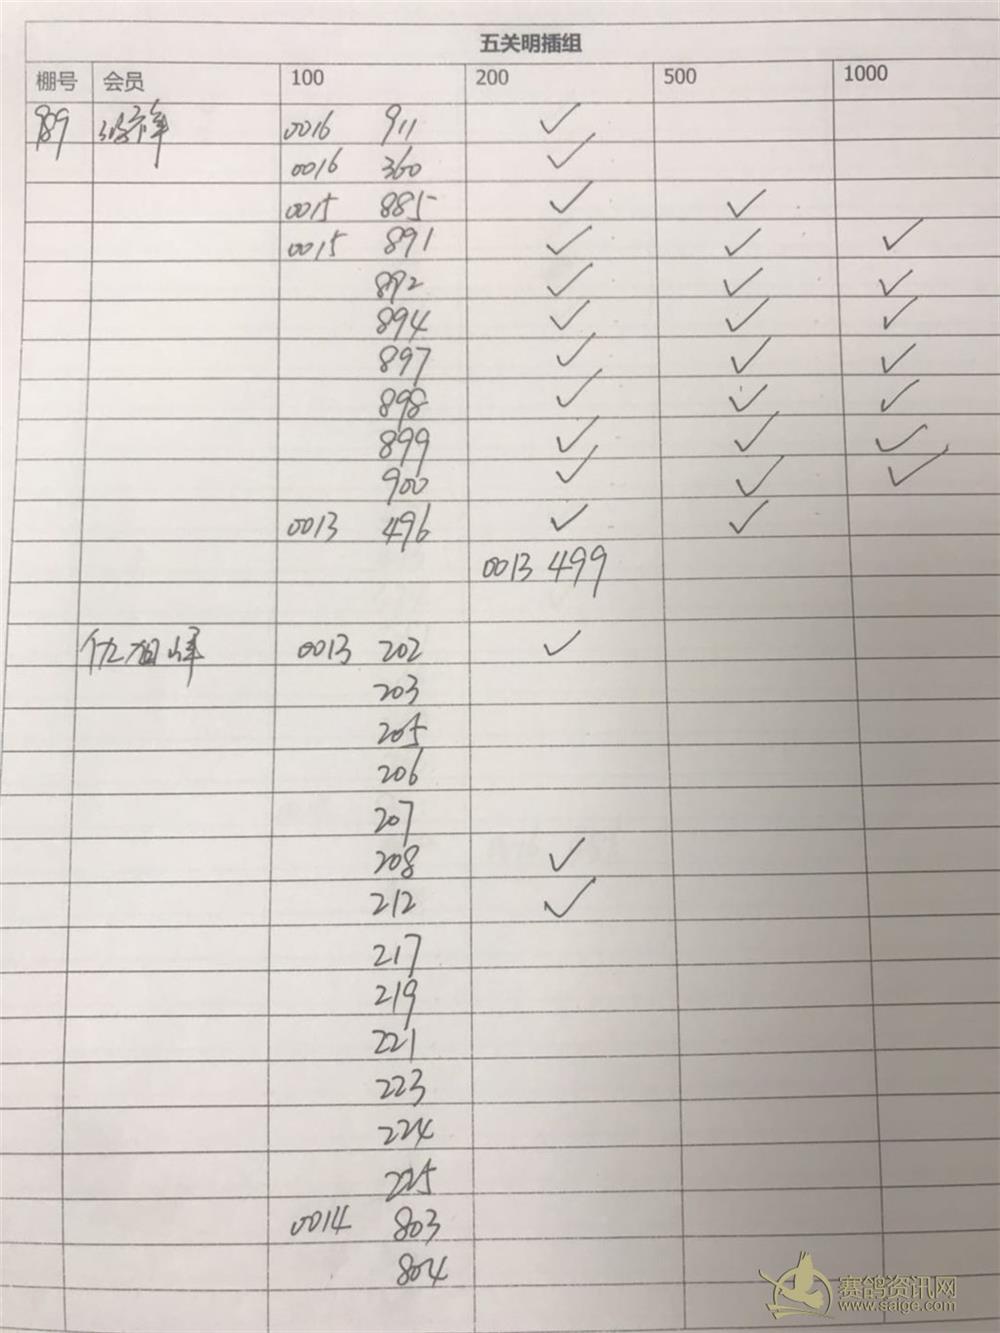 五关明插组
棚号 会员 100 200 500 1000
989 0016 911 ✓
0016 360 ✓
0015 885 ✓ ✓
0015 891 ✓ ✓ ✓
892 ✓ ✓ ✓
894 ✓ ✓ ✓
897 ✓ ✓ ✓
898 ✓ ✓ ✓
899 ✓ ✓ ✓
900 ✓ ✓ ✓
0013 496 ✓ ✓
0013 499
0013 202 ✓
203
205
206
207
208 ✓
212 ✓
217
219
221
223
224
225
0014 803
804
赛鸽资讯网
www.saige.com